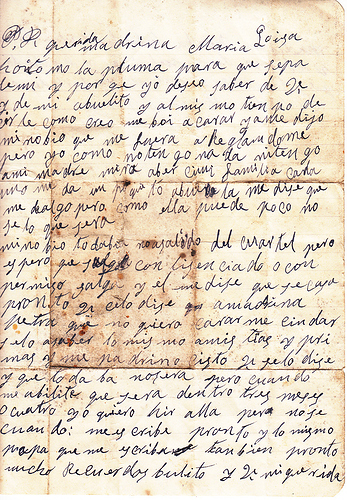 P. D querida madrina Maria Loisa
hoi tomo la pluma para que sepa
de mi y por qe yo deseo saber de Uª
y de mi abuelito y al mismo tempo de
cirle como creo me boi a casar ya me dijo
mi nobio que me fuera a Reglandome
pero yo como no tengo nada ni tengo
a mi madre mira aber ci mi familia cada
uno me da un poquito abuela me dise que
me balgo pera como ella puede poco no
se lo que sera
mi nobio todaba no a salido del cuartel pero
espero que salga con lisenciado o con
permiso salga y el me dise que se casa
pronto Uª cito dise qu a madrina
petra que no quiero casarme cin dar
selo a saber lo mismo a mis tias y pri
mas y me padrino cisto Uª se lo dise
y que todaba no sera pero cuando
me abilite que sera dentro tres meses
o cuatro yo quiero hir alla pero no se
cuando: me escribe pronto y lo mismo
papa que me escriba tanbien pronto
mucho Recuerdos bulito y Uª mi querida